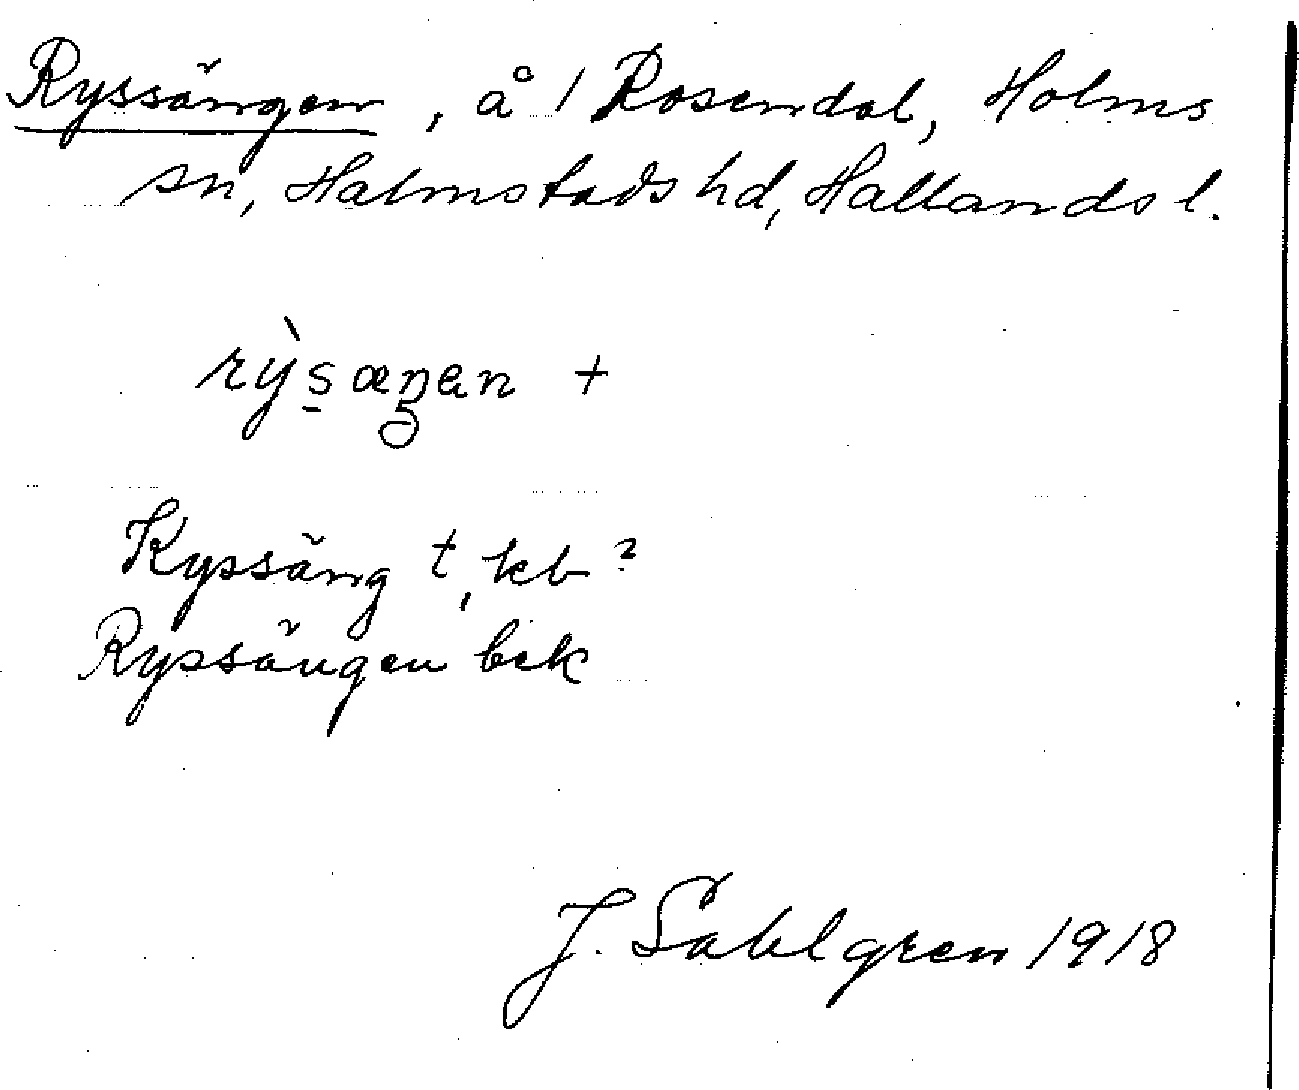 Ryssängen, å 1 Rosendal, Holms
sn, Halmstads hd, Hallands l.
rỳs̲æŋen +
Kyssäng t, kb ?
Ryssängen bek
J. Sahlgren 1918